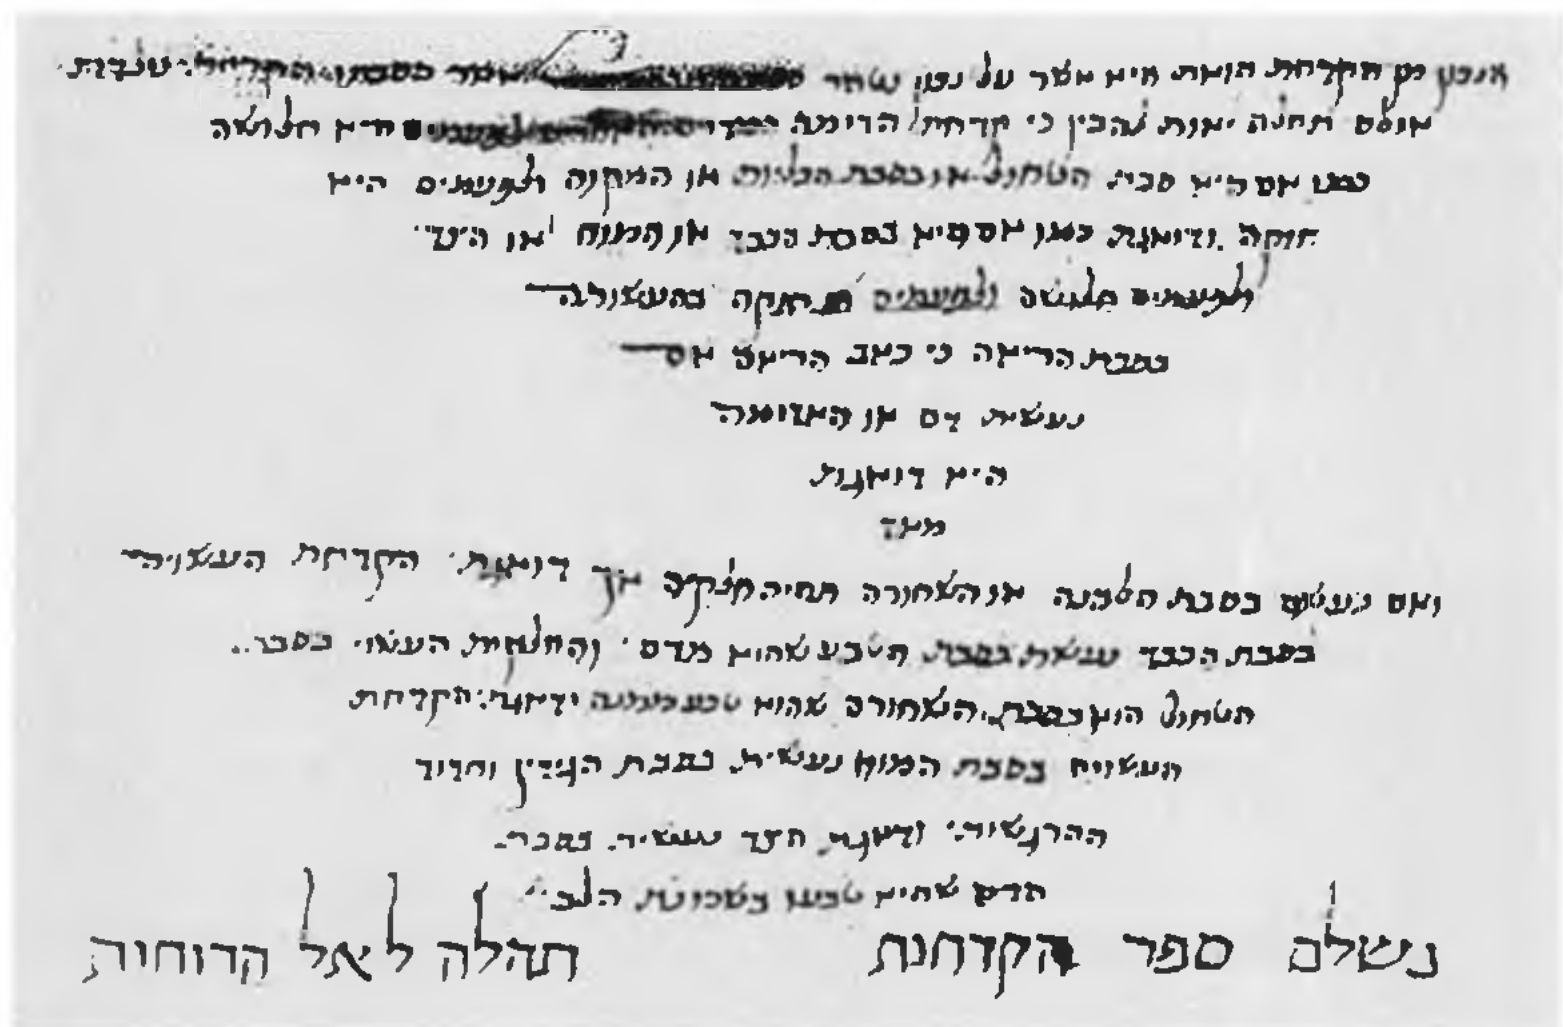 מן הקדחת הזאת היא אשר על נכון
אולם תחלה יאות להבין כי קדחת הריאה היא חלושה
כמו אם היא סבת הטחול או בסבת הכליות או המקוה ולפעמים היא
חזקה ודואגת כמו אם היא בסבת הכבד או המוח או הצד
ולפעמים חלושה ולפעמים חזקה כהעשויה
בסבת הריאה כי כאב הריאה אם
נעשית דם או האדומה
היא דואגת
מאד
ואם נעשה בסבת הלבנה או השחורה תהיה חלקה אך דואגת הקדחת העשויה
בסבת הכבד נעשית בסבת הטבע שהוא מדם והחלקות העשוי בסבת
הטחול הוא בסבת השחורה שהוא טבע ודאגת הקדחת
העשויה בסבת המוח נעשית בסבת הגידין וחדוד
ההרגשות ודאגת הצד נעשית בסבת
הדם שהיא טבעו בשכונת הלב
נשלם ספר הקדחות תהלה לאל הרוחות